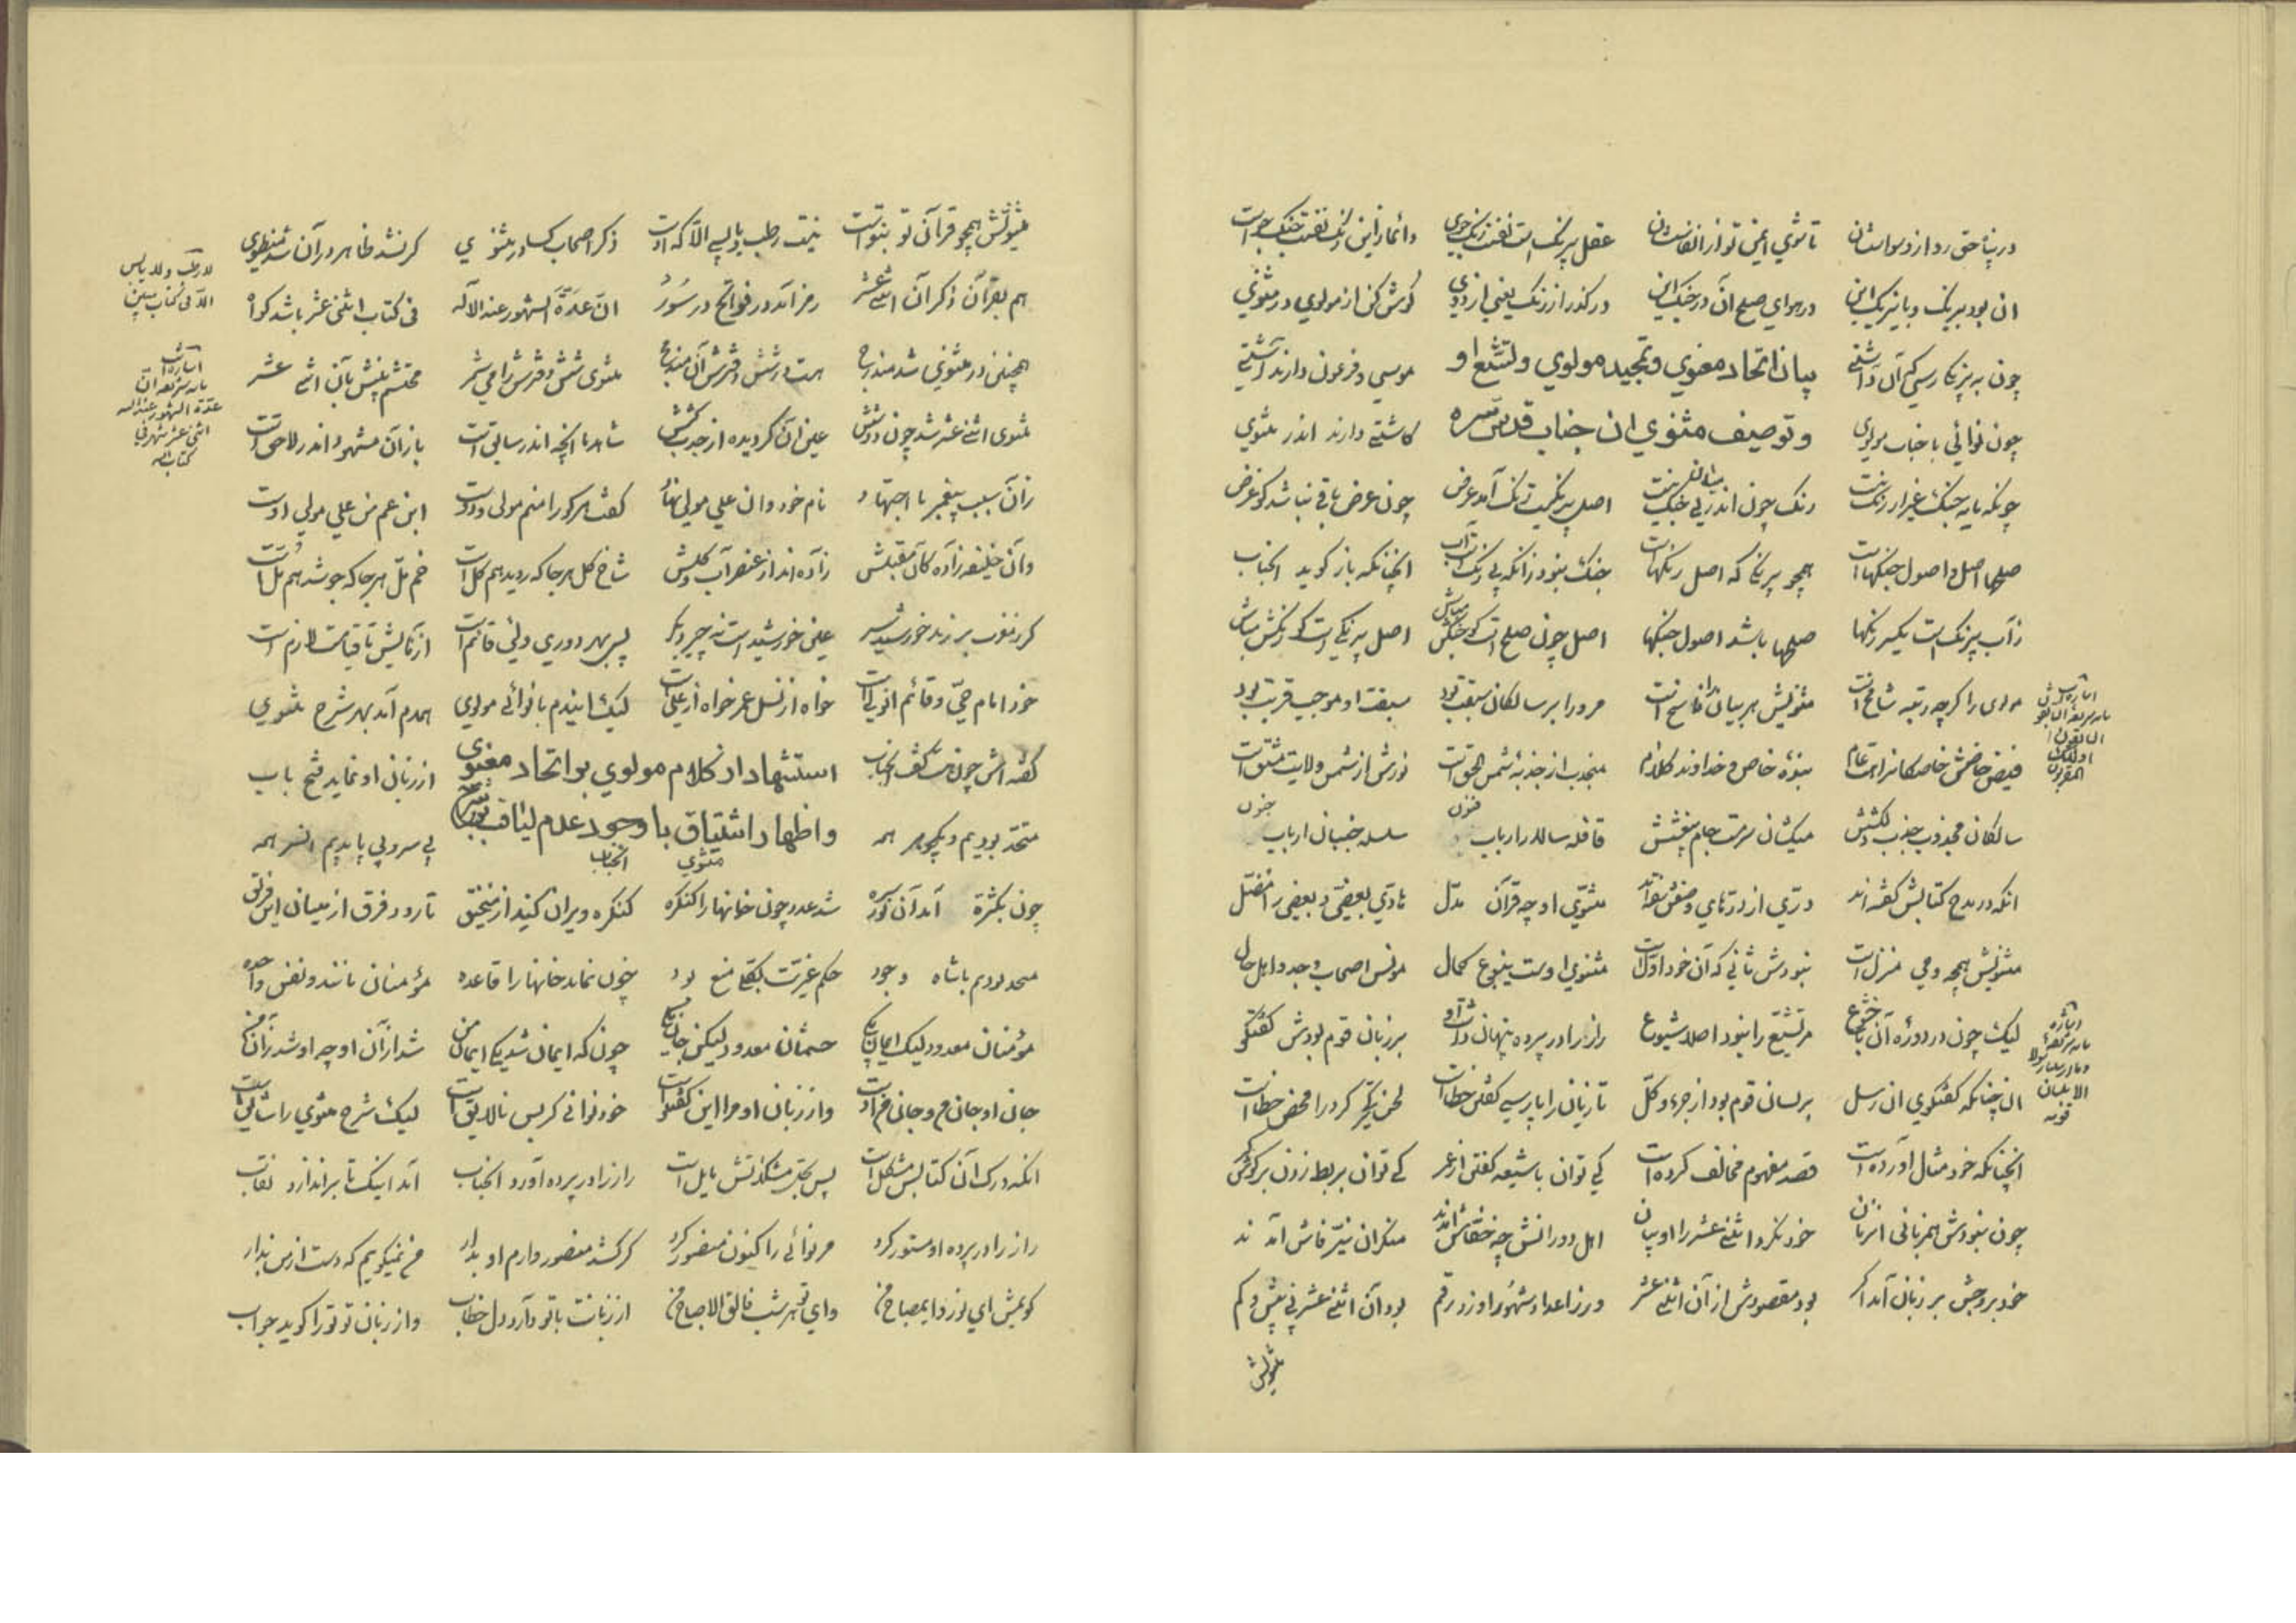 در پناه حق رد از وسواستان تا شوی ایمن تو از انفاسشان عقل بیرنگ است نفست رنگ جوی دائما زین رنگ نفست جنگ جوست
ان بود بیرنگ و با نیرنگ این در هوای صلح آن در جنگ این در گذر از رنگ یعنی از دوی گوش کن از مولوی در مثنوی
چون به بیرنگی رسی کآن داشتی بیان اتحاد معنوی و تمجید مولوی و تشیع او موسی و فرعون دارند آشتی
چون نوائی با جناب مولوی و توصیف مثنوی ان جناب قدس سره کاشتی دارند اندر مثنوی
چونکه مایه جنگ غیر از رنگ نیست رنگ چون اندر پی جنگیت اصل بیرنگیت رنگ آمد عرض چون عرض باقی نباشد کو غرض
صلحها اصل و اصول جنگهاست همچو بیرنگی که اصل رنگهاست جنگ نبود زانکه بی رنگ آنچنانکه باز گوید انجناب
زآب بیرنگ است یکسر رنگها صلحها باشد اصول جنگها اصل چون صلح است گو جنگش مباش اصل بیرنگی است گو رنگش مباش
مولوی را گرچه رتبه شامخ است مثنویش هر بیان را ناسخ است مر ورا بر سالکان سبقت بود سبقت او موجب قربت بود
فیض خاصش خاصگانرا هست عام بنده خاص و خداوند کلام منجذب از جذبه شمس الحق است نورش از شمس ولایت مشتق است
سالکان مجذوب جذب دلکشش میکشان سرمست جام بیغشش قافله سالار ارباب فنون سلسله جنبان ارباب جنون
انکه در مدح کتابش گفته اند درّی از درهای وصفش سفته اند مثنوی او چو قرآن مدل هادی بعضی و بعضی را مضل
مثنویش همچو وحی منزل است نبودش ثانی که آن خود اول است مثنوی اوست ینبوع کمال مونس اصحاب وجد و اهل حال
لیک چون در دوره آن با خشوع مر تشیع را نبود اصلا شیوع راز را در پرده پنهان داشت او بر زبان قوم بودش گفتگو
ان چنانکه گفتگوی ان رسل بر لسان قوم بود از جزء و کل تازیان را پارسی گفتن خطاست
انچنانکه خود مثال آورده است قصد مفهوم مخالف کرده است کی توان با شیعه گفتن از عمر کی توان بربط زدن در پیش کر
چون نبودش همزبانی ان زمان خود نکرد اثنی عشر را او بیان اهل دورانش چه خفاش آمدند منکران نیر فاش آمدند
خود بروجش بر زبان آمد اگر بود مقصودش از آن اثنی عشر ور ز اعداد شهور او زد رقم بود آن اثنی عشر نی بیش و کم
مثنویش
مثنویش همچو قرآن تو بتوست نیست رطب و یابسی الا که اوست ذکر اصحاب کسا در مثنوی گر نشد ظاهر در آن شد منطوی
هم بقرآن ذکر آن اثنی عشر رمز آمد در فواتح در سور انّ عدّة الشهور عند الاله فی کتاب اثنی عشر باشد گواه
همچنین در مثنوی شد مندرج هست در شش دفترش آن مندمج مثنوی شش دفترش را می شمر
مثنوی اثنی عشر شد چون دو شش عین آن گردیده از جذب و کشش شاهد ما انچه اندر سابق است باز آن مشهود اندر لاحق است
زان سبب پیغمبر با اجتهاد نام خود وان علی مولی نهاد گفت هر کو را منم مولی و دوست ابن عم من علی مولی اوست
وان خلیفه زاده کآن مقبلش زاده اند از عنصر آب و گلش شاخ گل هر جا که روید هم گل است خم مل هر جا که جوشد هم مل است
گر ز مغرب بر زند خورشید سر عین خورشید است نه چیز دگر پس بهر دوری ولی قائم است آزمایش تا قیامت لازم است
خود امام حی و قائم آن ولی است خواه از نسل عمر خواه از علی است لیک ایندم با نوائی مولوی همدم آمد بهر شرح مثنوی
گفته اش چون هست کشف الحجاب استشهاد از کلام مولوی بر اتحاد معنوی از زبان او نماید فتح باب
متحد بودیم و یک گوهر همه و اظهار اشتیاق با وجود عدم لیاقت بشرح مثنوی انجناب بی سر و بی پا بدیم آن سر همه
چون بکثرت آمد آن نور سره شد عدد چون خانها را کنگره کنگره ویران کنید از منجنیق تا رود فرق از میان این فریق
متحد بودیم با شاه وجود حکم غیریت بکلی منع بود چون نماند خانها را قاعده مؤمنان مانند و نفس واحده
مؤمنان معدود لیک ایمان یکی جسمشان معدود لیکن جان یکی چون که ایمان شد یکی ایمان من شد از آن او چه او شد زآن من
جان او جان من و جانم اوست واز زبان او مرا این گفتگوست خود نوائی گر بس نالایق است لیک شرح مثنوی را شایق است
انکه درک آن کتابش مشکل است پس بحل مشکلاتش مایل است راز را در پرده آورد انجناب آمد اینک تا بر اندازد نقاب
راز را در پرده او مستور کرد مر نوائی را کنون منصور کرد گر کشد منصور وارم او بدار من نمیگویم که دست از من بدار
گویمش ای نور و ای مصباح من وای تو هر شب فالق الاصباح من از زبانت با تو دارد دل خطاب واز زبان تو ترا گوید جواب
لا رطب ولا یابس الا فی کتاب مبین